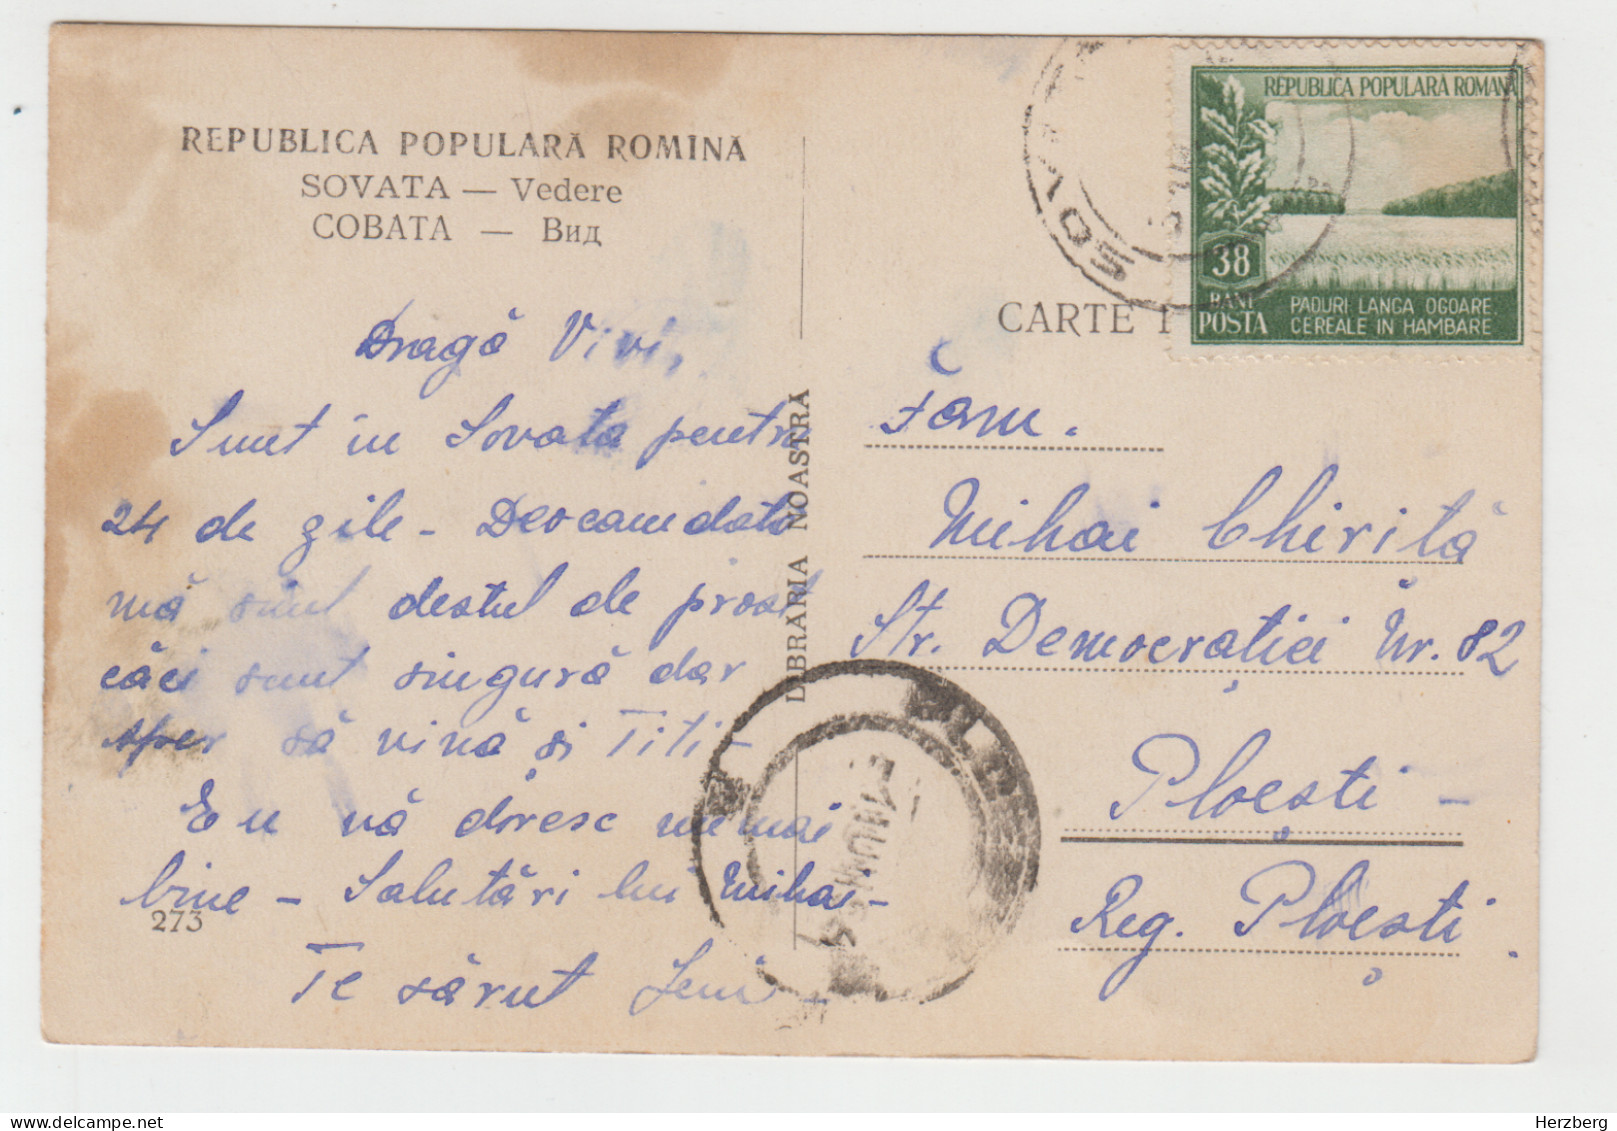 REPUBLICA POPULARĂ ROMÎNĂ
SOVATA — Vedere
СОВАТА — Вид
Dragă Vivi,
Sunt în Sovata pentru
24 de zile - Deocamdată
mă simt destul de prost
căci sunt singură dar
sper să vină și Titi -
Eu vă doresc numai
bine - Salutări lui Mihai -
Te sărut Jeni -
273
LIBRĂRIA NOASTRĂ
CARTE P
REPUBLICA POPULARĂ ROMÂNĂ
38
BANI
POSTA
PADURI LANGA OGOARE
CEREALE IN HAMBARE
SOVATA
Fam.
Mihai Chiriță
Str. Democrației Nr. 82
Ploești -
Reg. Ploești.
Herzberg